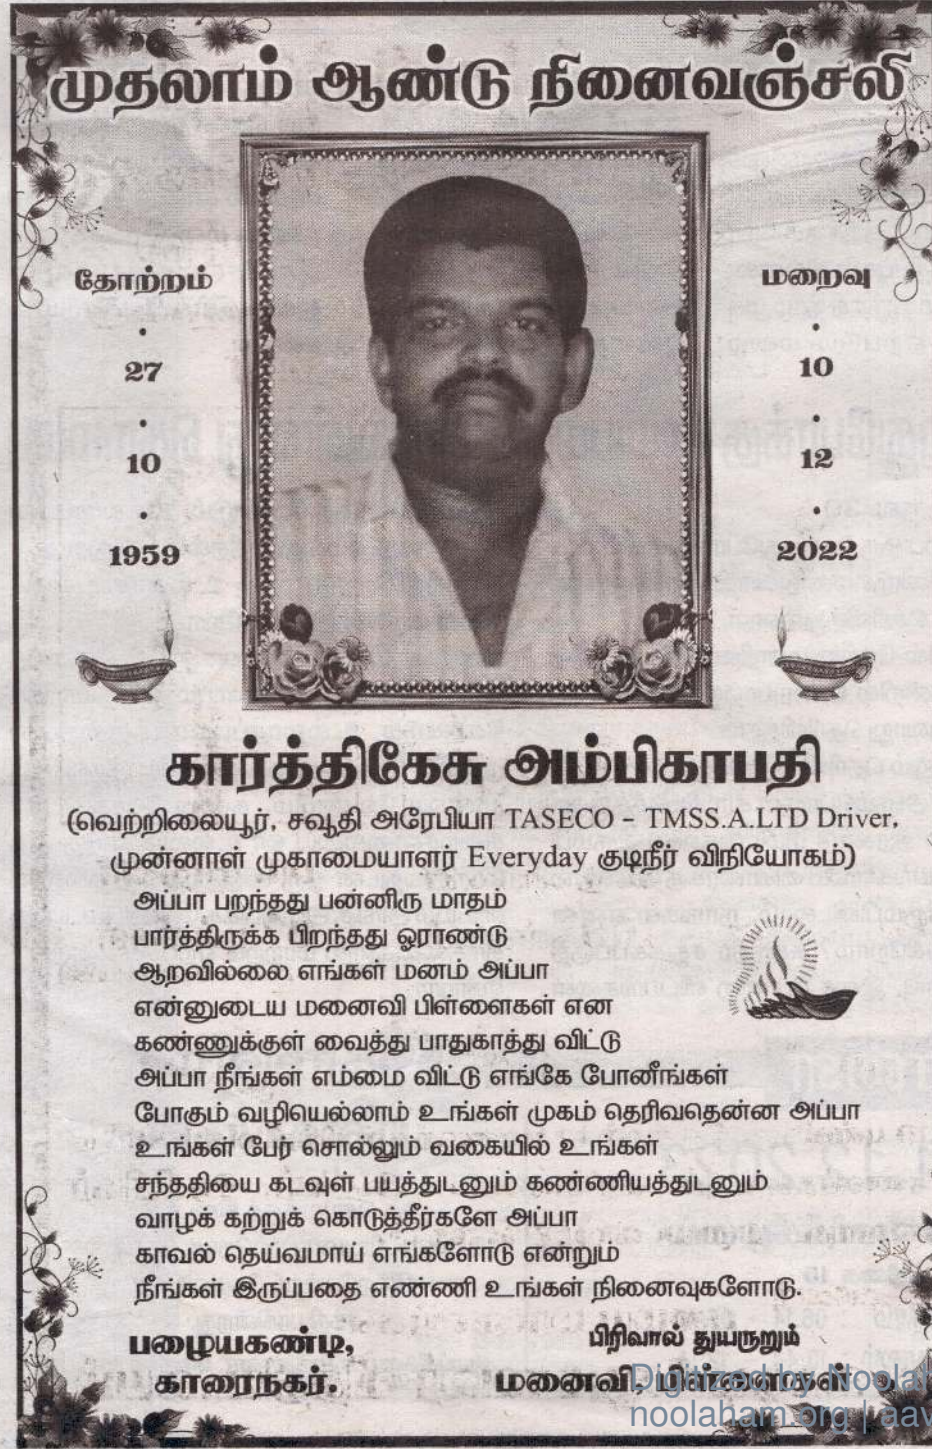 முதலாம் ஆண்டு நினைவஞ்சலி
தோற்றம்
.
27
.
10
.
1959
மறைவு
.
10
.
12
.
2022
கார்த்திகேசு அம்பிகாபதி
(வெற்றிலையூர், சவூதி அரேபியா TASECO – TMSS.A.LTD Driver,
முன்னாள் முகாமையாளர் Everyday குடிநீர் விநியோகம்)
அப்பா பறந்தது பன்னிரு மாதம்
பார்த்திருக்க பிறந்தது ஓராண்டு
ஆறவில்லை எங்கள் மனம் அப்பா
என்னுடைய மனைவி பிள்ளைகள் என
கண்ணுக்குள் வைத்து பாதுகாத்து விட்டு
அப்பா நீங்கள் எம்மை விட்டு எங்கே போனீங்கள்
போகும் வழியெல்லாம் உங்கள் முகம் தெரிவதென்ன அப்பா
உங்கள் பேர் சொல்லும் வகையில் உங்கள்
சந்ததியை கடவுள் பயத்துடனும் கண்ணியத்துடனும்
வாழக் கற்றுக் கொடுத்தீர்களே அப்பா
காவல் தெய்வமாய் எங்களோடு என்றும்
நீங்கள் இருப்பதை எண்ணி உங்கள் நினைவுகளோடு.
பழையகண்டி,
காரைநகர்.
பிரிவால் துயருறும்
மனைவி, பிள்ளைகள்
Digitized by Noolah
noolaham.org | aav